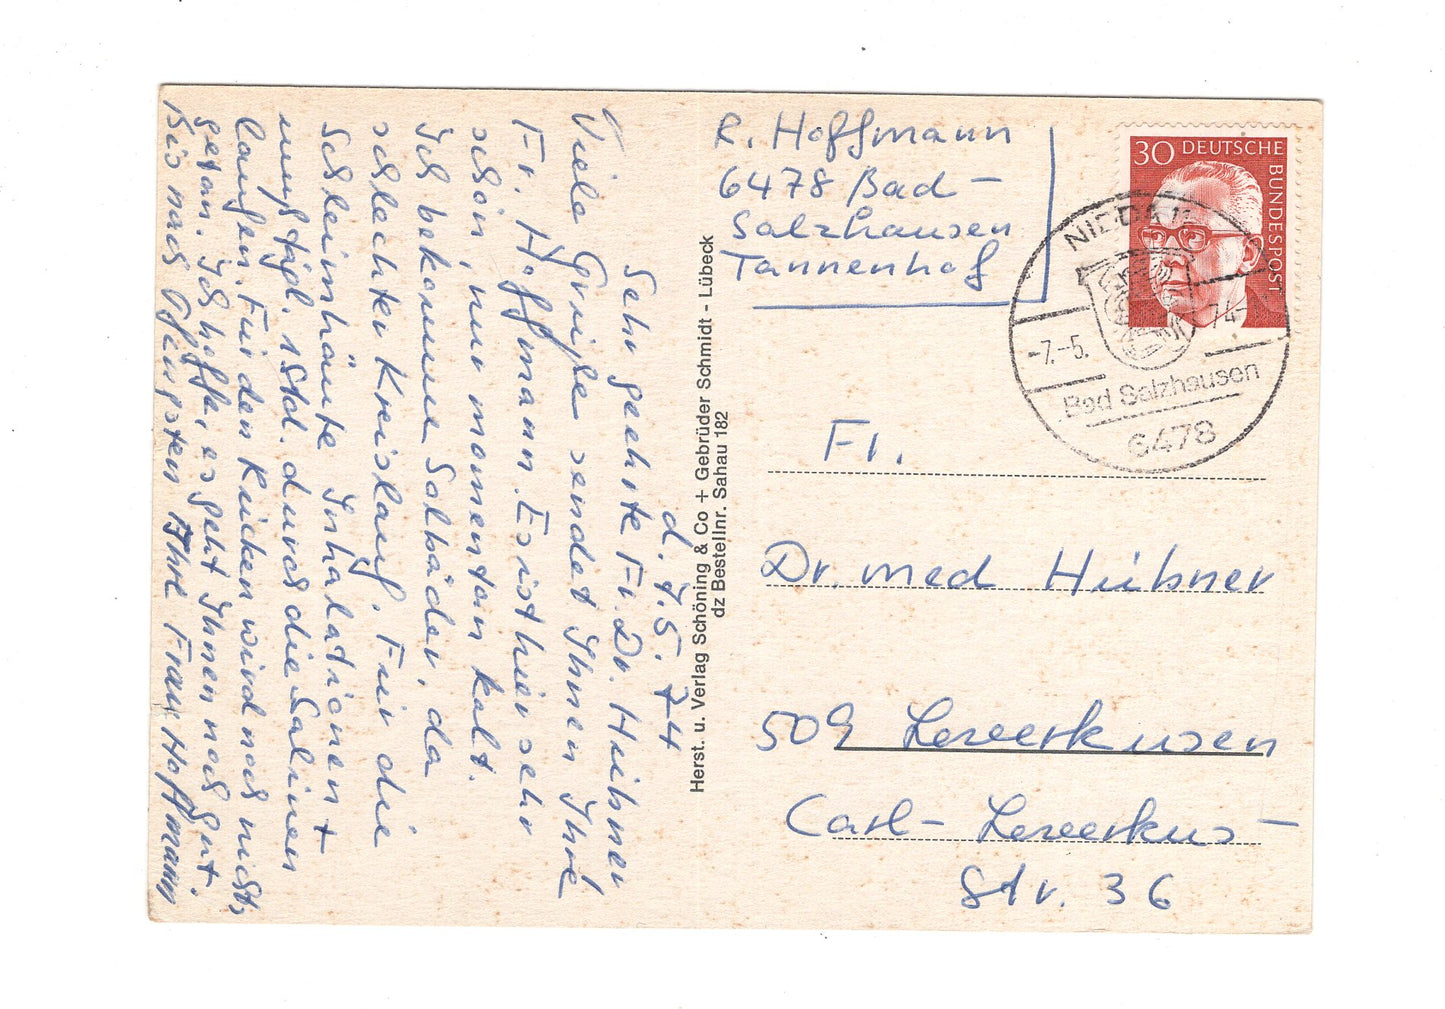 d. 7.5.74
Sehr geehrte Fr. Dr. Hübner
Viele Grüße sendet Ihnen Ihre
Fr. Hoffmann. Es ist hier sehr
schön, nur momentan kalt.
Ich bekomme Solbäder, da
schlechter Kreislauf. Für die
Schleimhäute Inhalationen +
muß tägl. 1 Std. durch die Salinen
laufen. Für den Rücken wird noch nichts
getan. Ich hoffe, es geht Ihnen noch gut.
Bis nach Pfingsten Ihre Frau Hoffmann
Herst. u. Verlag Schöning & Co + Gebrüder Schmidt - Lübeck
dz Bestellnr. Sahau 182
R. Hoffmann
6478 Bad-
Salzhausen
Tannenhof
30 DEUTSCHE
BUNDESPOST
NIDDA
-7.-5.
74
Bad Salzhausen
6478
Fr.
Dr. med Hübner
509 Leverkusen
Carl-Leverkus-
Str. 36